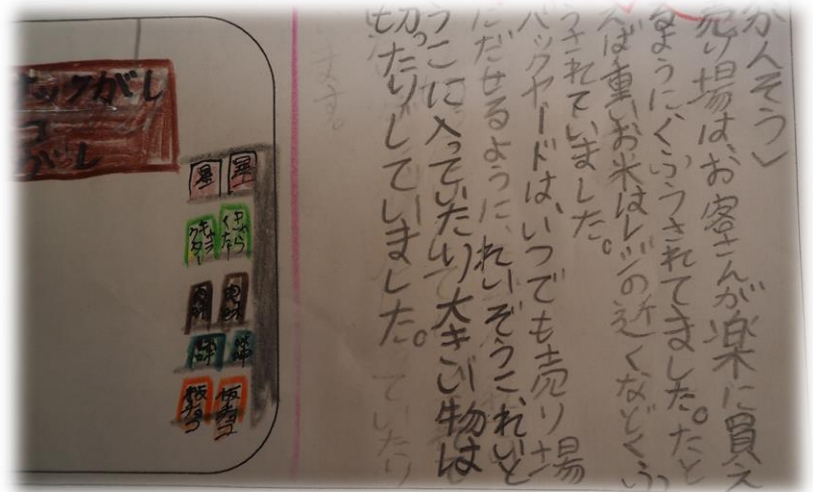 かんそう〉
売り場は、お客さんが楽に買え
るようにくふうされてました。たと
えば重いお米はレジの近くなどくふ
うされていました。
バックヤードは、いつでも売り場
にだせるように、れいぞうこ、れいと
うこに入っていたり大きい物は
切ったりしていました。
ます。
ックがし
コ
がし
キャラクター
きゃらくたー
肉味
肉味
板チョコ
板チョコ